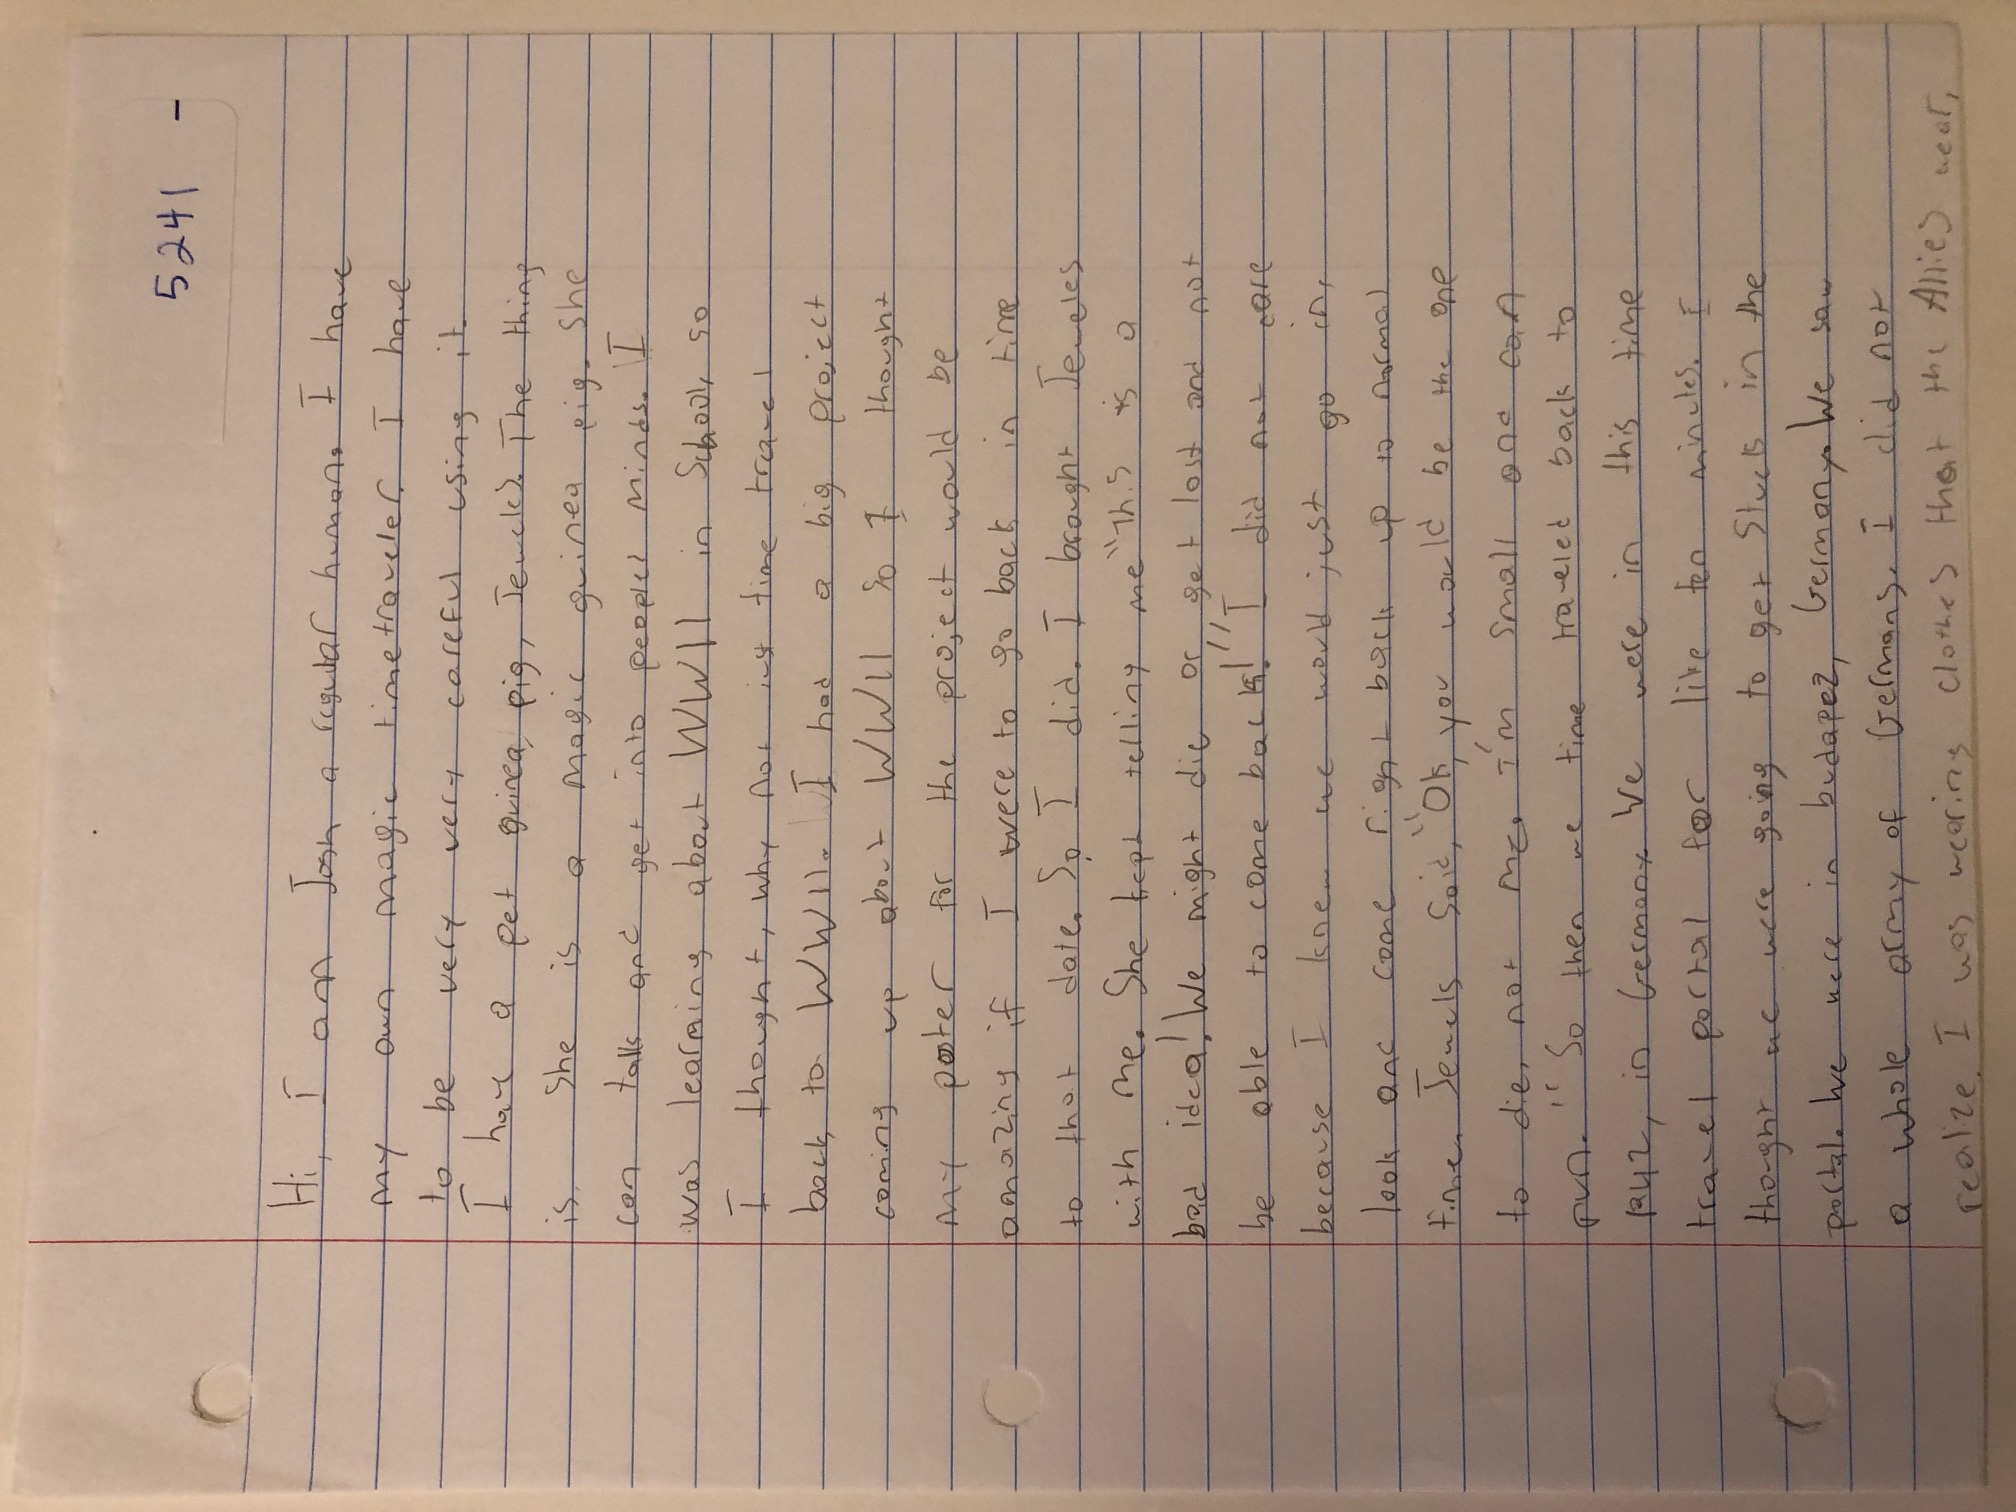 5241 -
Hi, I am Josh a regular human. I have
my own magic timetraveler. I have
to be very very careful using it.
I have a pet guinea pig, Jeweles. The thing
is she is a magic guinea pig. She
can talk and get into peoples minds. I
was learning about WWII in School, so
I thought, why not just time travel
back to WWII. I had a big project
coming up about WWII so I thought
my poster for the project would be
amazing if I were to go back in time
to that date. So I did. I brought Jeweles
with me. She kept telling me "This is a
bad idea! We might die or get lost and not
be able to come back!" I did not care
because I knew we would just go in,
look and come right back up to normal
time. Jewels Said, "Ok, you would be the one
to die, not me. I'm small and can
run." So then we time traveled back to
1942, in Germany. We were in this time
travel portal for like ten minutes. I
thought we were going to get Stuck in the
portal. We were in budapez, Germany. We saw
a whole army of Germans. I did not
realize I was wearing clothes that the Allies wear,